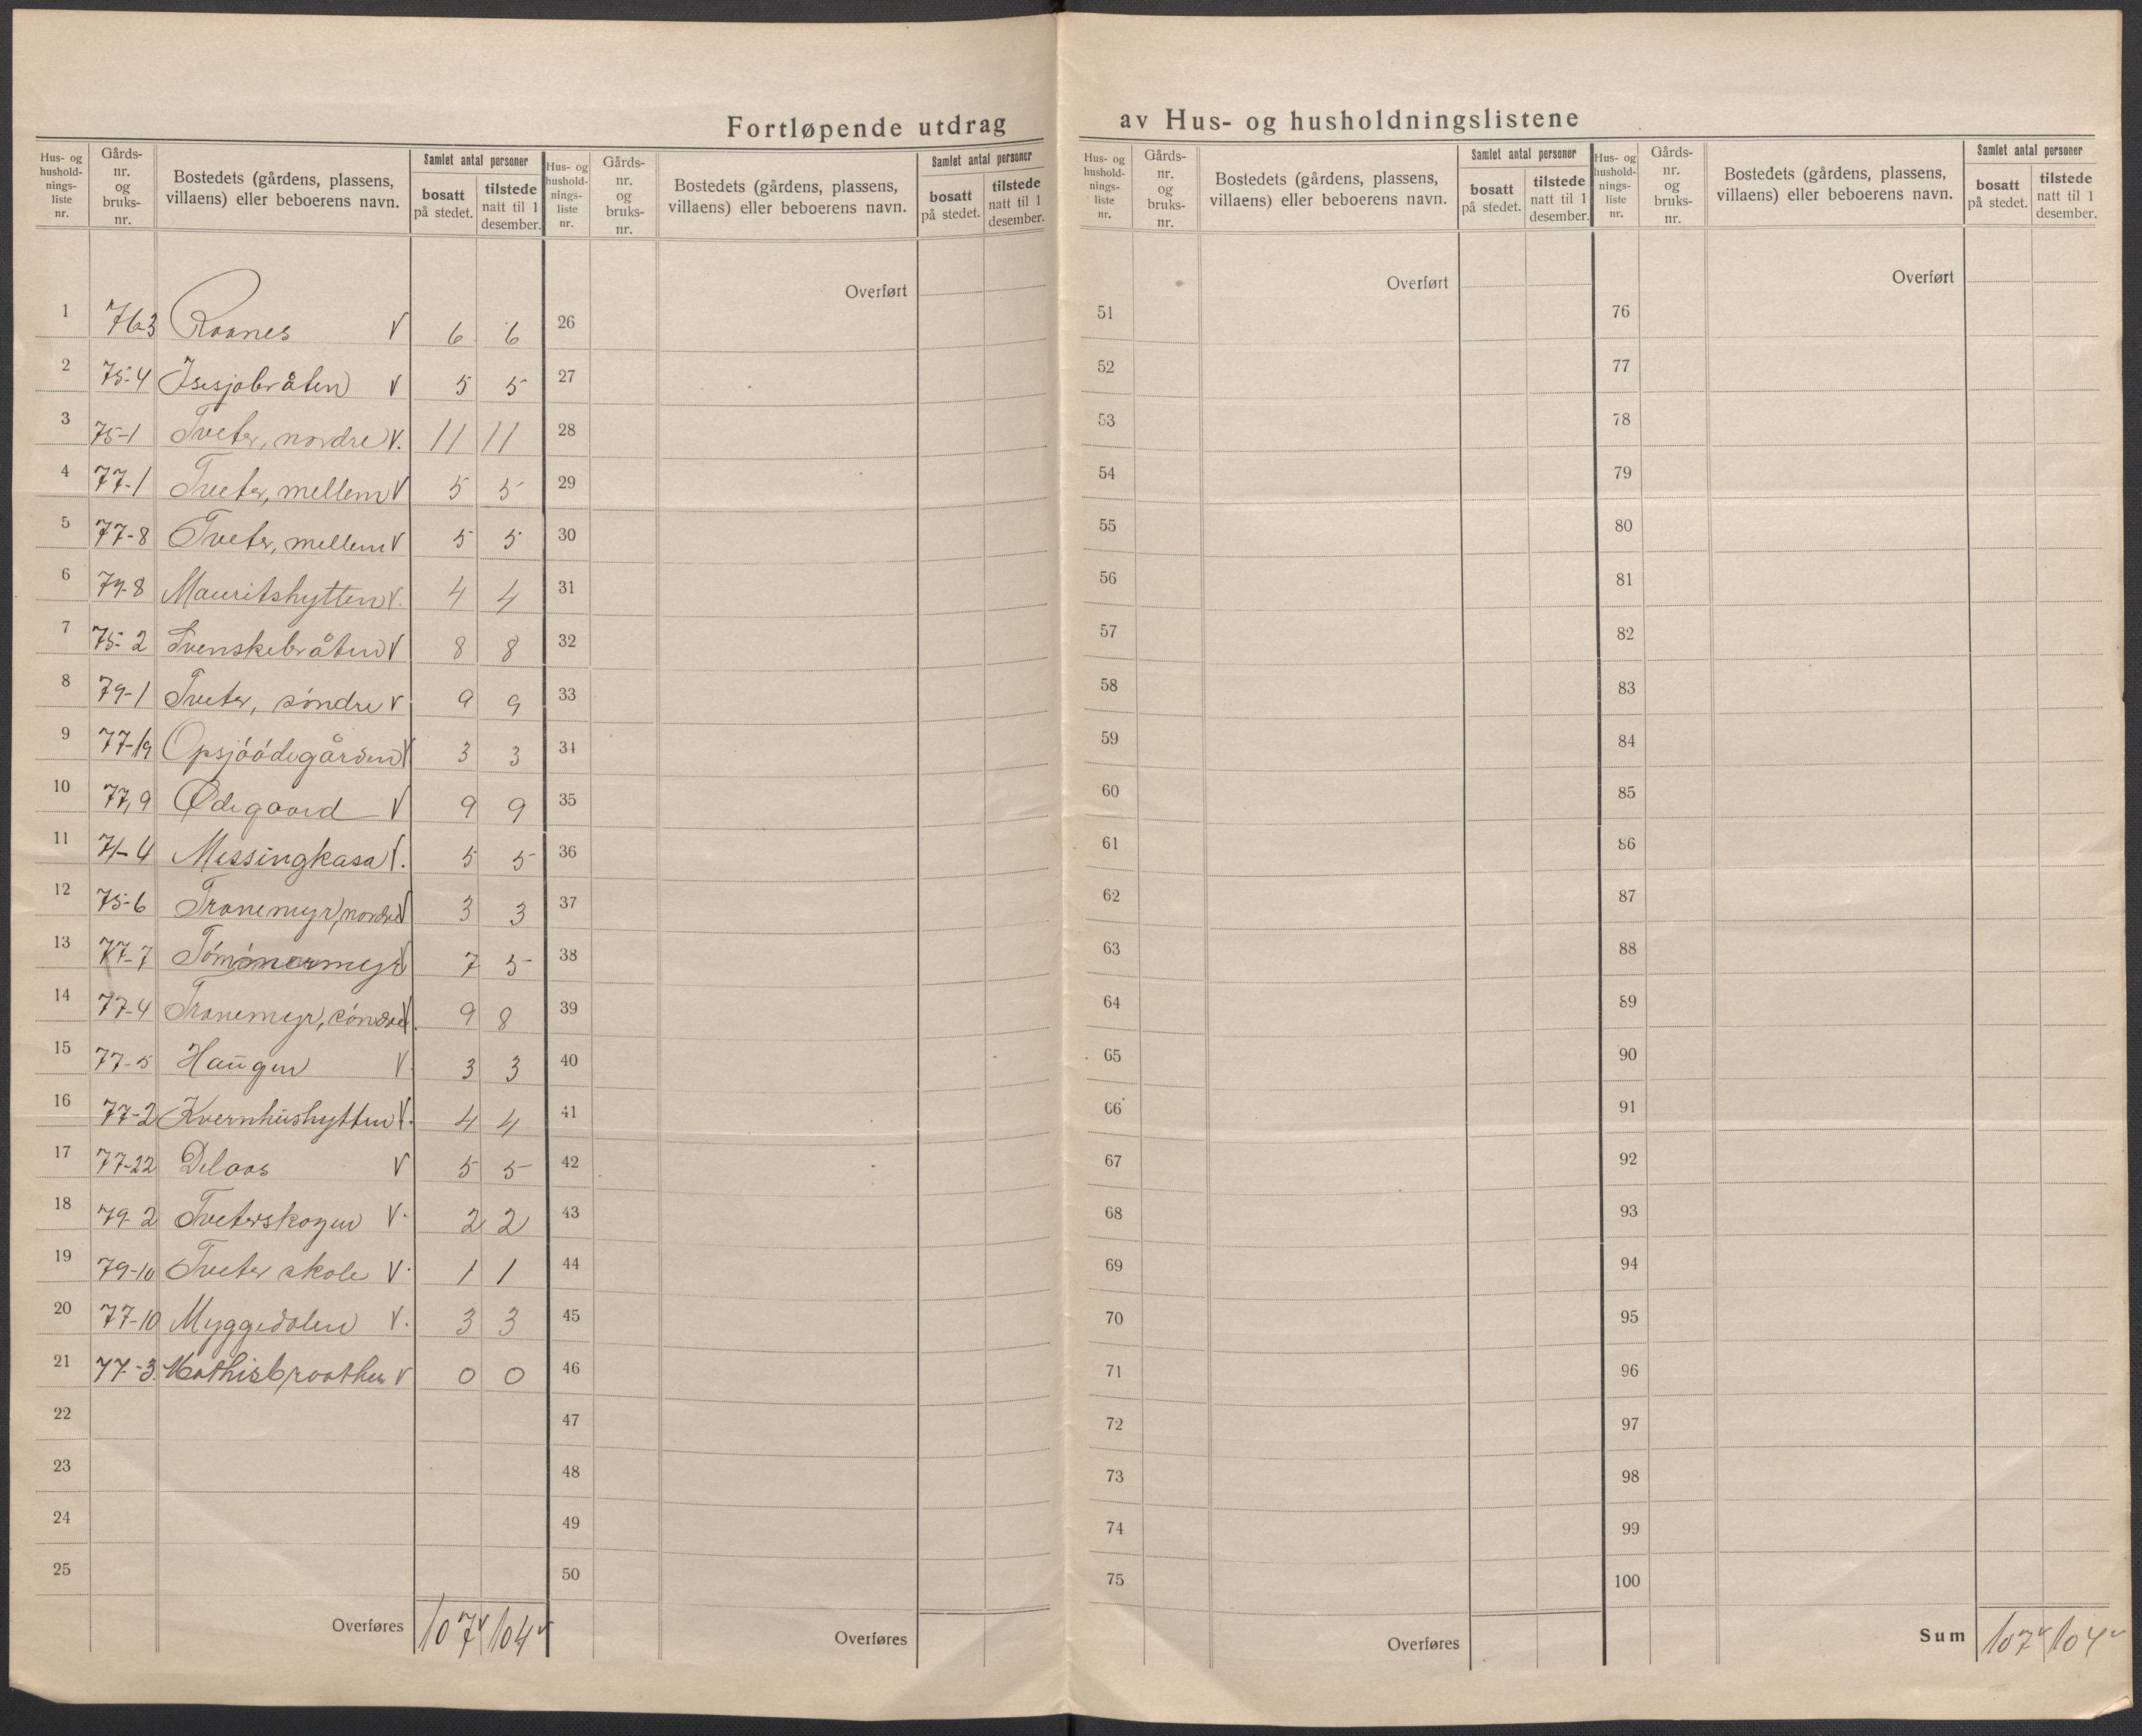 Fortløpende utdrag av Hus- og husholdningslistene
Hus- og hushold-nings-liste nr. Gårds-nr. og bruks-nr. Bostedets (gårdens, plassens, villaens) eller beboerens navn. Samlet antal personer bosatt på stedet. tilstede natt til 1 desember.
Hus- og hushold-nings-liste nr. Gårds-nr. og bruks-nr. Bostedets (gårdens, plassens, villaens) eller beboerens navn. Samlet antal personer bosatt på stedet. tilstede natt til 1 desember.
Hus- og hushold-nings-liste nr. Gårds-nr. og bruks-nr. Bostedets (gårdens, plassens, villaens) eller beboerens navn. Samlet antal personer bosatt på stedet. tilstede natt til 1 desember.
Hus- og hushold-nings-liste nr. Gårds-nr. og bruks-nr. Bostedets (gårdens, plassens, villaens) eller beboerens navn. Samlet antal personer bosatt på stedet. tilstede natt til 1 desember.
1 76-3 Raanes V 6 6
2 75-4 Isesjøbråten V 5 5
3 75-1 Tveter, nordre V. 11 11
4 77-1 Tveter, mellem V 5 5
5 77-8 Tveter, mellem V 5 5
6 79-8 Mauritshytten V. 4 4
7 75-2 Svenskebråten V 8 8
8 79-1 Tveter, søndre V 9 9
9 77-19 Opsjøødegården V 3 3
10 77,9 Ødegaard V 9 9
11 71-4 Messingkasa V. 5 5
12 75-6 Tranemyr, nordre V 3 3
13 77-7 7 5
14 77-4 Tranemyr, søndre V. 9 8
15 77-5 Haugen V. 3 3
16 77-2 Kvernhushytten V. 4 4
17 77-22 Delaas V 5 5
18 79-2 Tveterskogen V. 2 2
19 79-10 Tveter skole V. 1 1
20 77-10 Myggedalen V. 3 3
21 77-3. Mathisbraathen V 0 0
22
23
24
25
Overføres 107 V 104 V
Overført
26
27
28
29
30
31
32
33
34
35
36
37
38
39
40
41
42
43
44
45
46
47
48
49
50
Overføres
Overført
51
52
53
54
55
56
57
58
59
60
61
62
63
64
65
66
67
68
69
70
71
72
73
74
75
Overføres
Overført
76
77
78
79
80
81
82
83
84
85
86
87
88
89
90
91
92
93
94
95
96
97
98
99
100
Sum 107 V 104 V